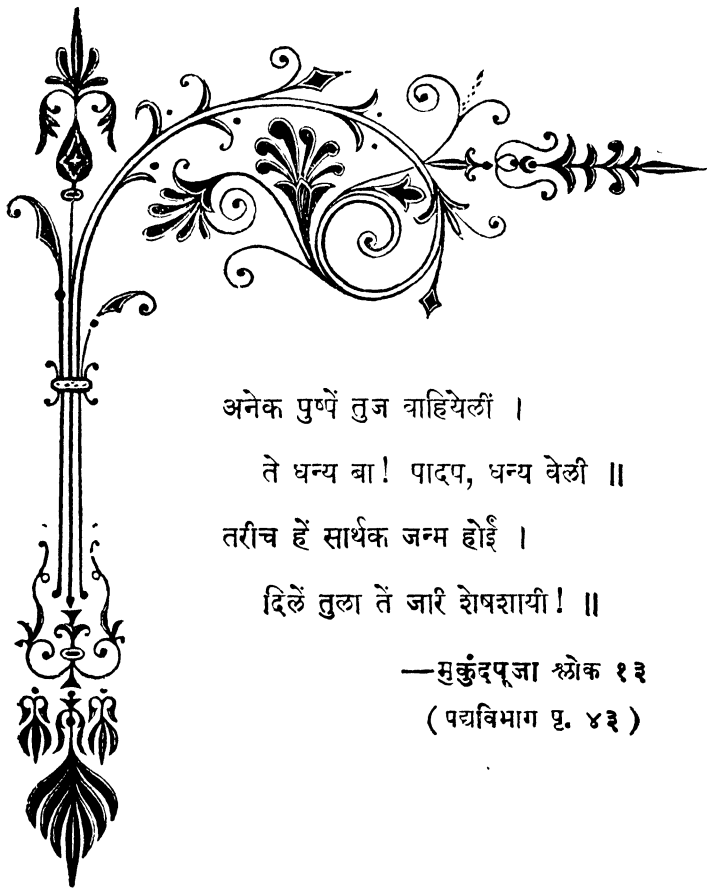 अनेक पुष्पें तुज वाहियेलीं ।
ते धन्य बा! पादप, धन्य वेली ॥
तरीच हें सार्थक जन्म होई ।
दिलें तुला तें जरि शेषशायी! ॥
—मुकुंदपूजा श्लोक १३
(पद्यविभाग पृ. ४३)